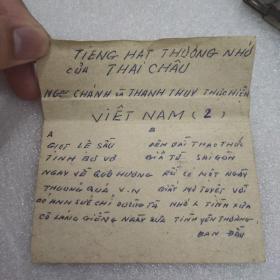 TIẾNG HÁT THƯƠNG NHỚ
CỦA THÁI CHÂU
NGỌC CHÁNH VÀ THANH THÚY THỰC HIỆN
VIỆT NAM (2)
A B
GIỌT LỆ SẦU ĐÊM DÀI THAO THỨC
TÌNH BƠ VƠ GIÃ TỪ SAIGON
NGÀY VỀ QUÊ HƯƠNG RỒI CÓ MỘT NGÀY
THƯƠNG QUÁ V.N GIẤC MƠ TUYỆT VỜI
CÓ ANH SƯỞI CHỈ ĐƯỜNG TÀ NHỚ X TÌNH XƯA
CÔ LÁNG GIỀNG NGÀY XƯA TÌNH YÊN THƯƠNG
BAN ĐẦU